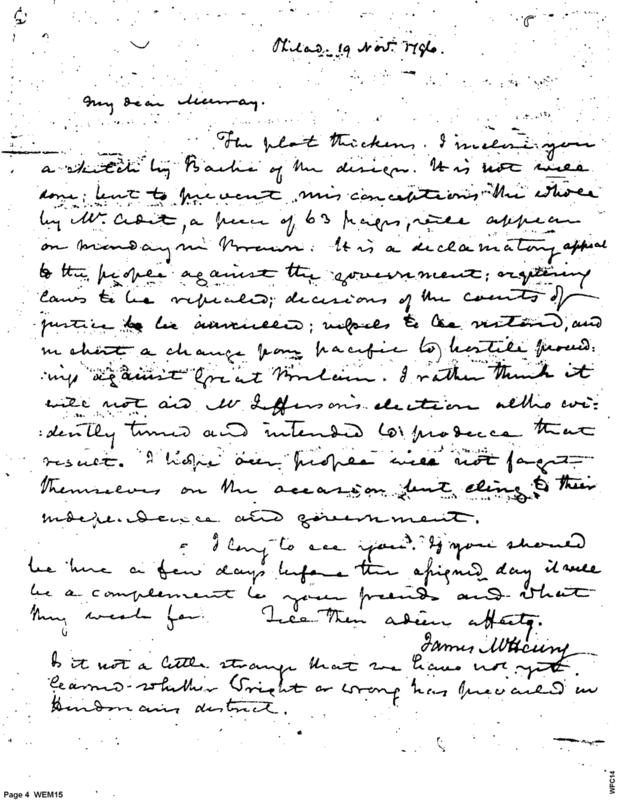 Philad. 19 Nov. 1796.
My dear Murray.
The plot thickens. I inclose you
a sketch by Bache of the design. It is not well
done; but to prevent misconceptions the whole
by Mr. Adet, a piece of 63 pages, will appear
on monday in Brown. It is a declamatory appeal
to the people against the government; requiring
laws to be repealed; decisions of the courts of
justice to be annulled; vessels to be restored, and
in short a change from pacific to hostile proceed:
ings against Great Britain. I rather think it
will not aid Mr Jefferson's election altho evi:
:dently timed and intended to produce that
result. I hope our people will not forget
themselves on the occasion but cling to their
independence and government.
I long to see you. If you should
be here a few days before the assigned day it will
be a complement to your friends and what
they wish for. Till then adieu affecty.
James McHenry
Is it not a little strange that we have not yet
learned whether Wright or wrong has prevailed in
Hindmans district.
Page 4 WEM15
WFC14